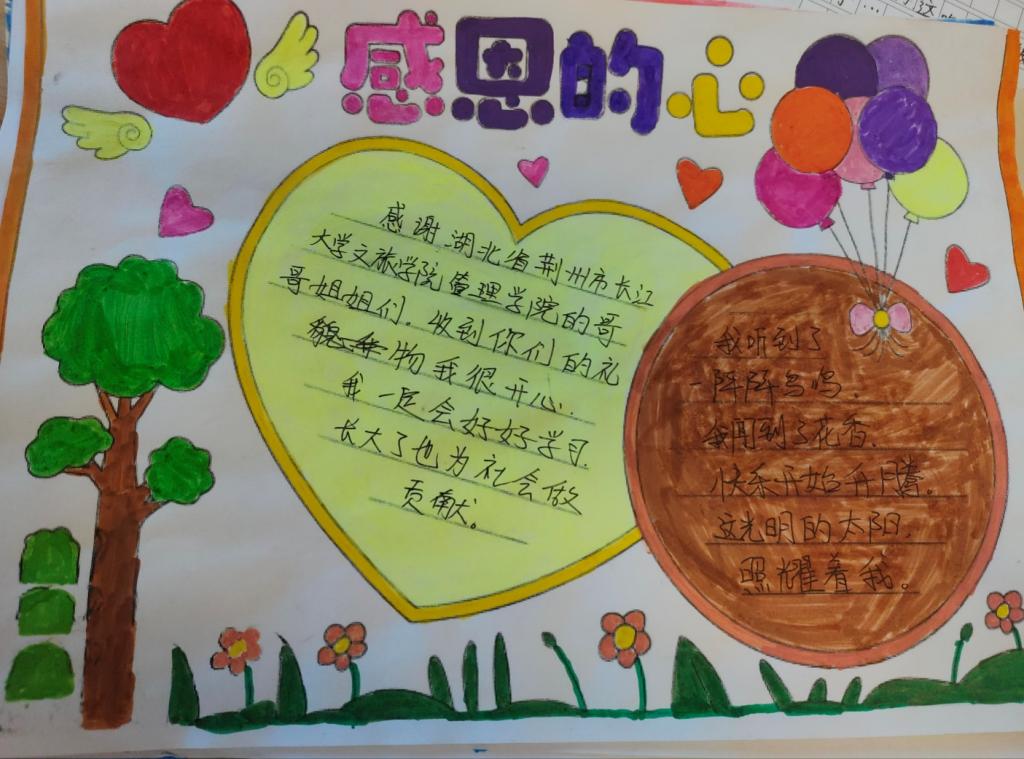 感恩的心
感谢湖北省荆州市长江
大学文旅学院管理学院的哥
哥姐姐们.收到你们的礼
物我很开心.
我一定会好好学习.
长大了也为社会做
贡献。
我听到了
一阵阵鸟鸣.
我闻到了花香.
快乐开始升腾。
这光明的太阳.
照耀着我。